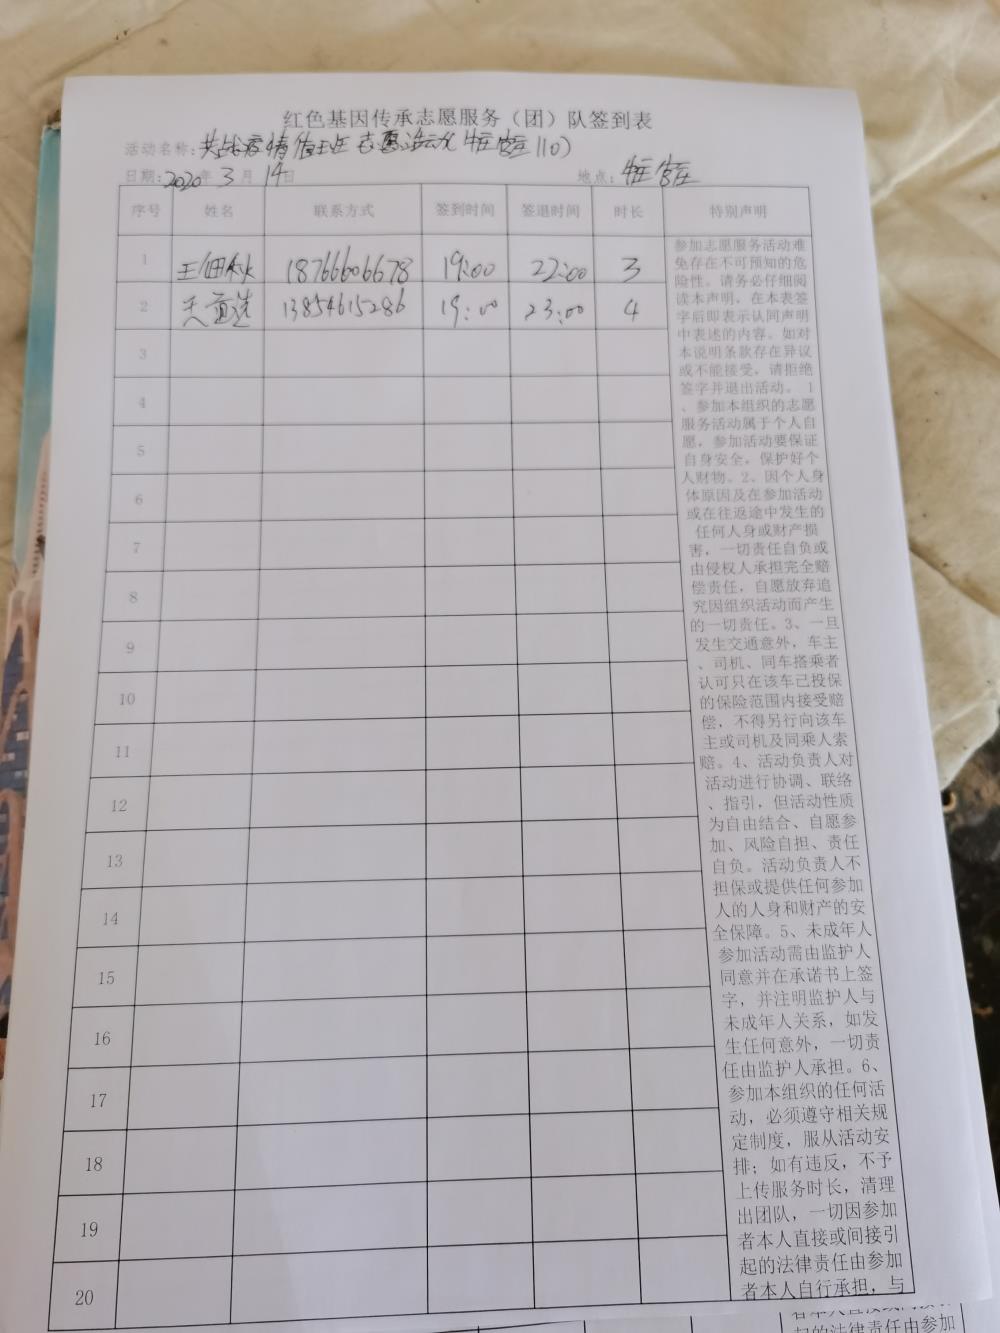 红色基因传承志愿服务（团）队签到表
活动名称：共战疫情 值班 志愿活动 牛庄 (10)
日期：2020年3月14日 地点：牛庄
序号 姓名 联系方式 签到时间 签退时间 时长 特别声明
1 王佃秋 18766606678 19:00 22:00 3
2 13854615286 19:00 23:00 4
3
4
5
6
7
8
9
10
11
12
13
14
15
16
17
18
19
20
参加志愿服务活动难
免存在不可预知的危
险性。请务必仔细阅
读本声明，在本表签
字后即表示认同声明
中表述的内容。如对
本说明条款存在异议
或不能接受，请拒绝
签字并退出活动。 1
、参加本组织的志愿
服务活动属于个人自
愿，参加活动要保证
自身安全，保护好个
人财物。2、因个人身
体原因及在参加活动
或在往返途中发生的
任何人身或财产损
害，一切责任自负或
由侵权人承担完全赔
偿责任，自愿放弃追
究因组织活动而产生
的一切责任。3、一旦
发生交通意外，车主
、司机、同车搭乘者
认可只在该车已投保
的保险范围内接受赔
偿，不得另行向该车
主或司机及同乘人索
赔。4、活动负责人对
活动进行协调、联络
、指引，但活动性质
为自由结合、自愿参
加、风险自担、责任
自负。活动负责人不
担保或提供任何参加
人的人身和财产的安
全保障。5、未成年人
参加活动需由监护人
同意并在承诺书上签
字，并注明监护人与
未成年人关系，如发
生任何意外，一切责
任由监护人承担。6、
参加本组织的任何活
动，必须遵守相关规
定制度，服从活动安
排；如有违反，不予
上传服务时长，清理
出团队，一切因参加
者本人直接或间接引
起的法律责任由参加
者本人自行承担，与
起的法律责任由参加